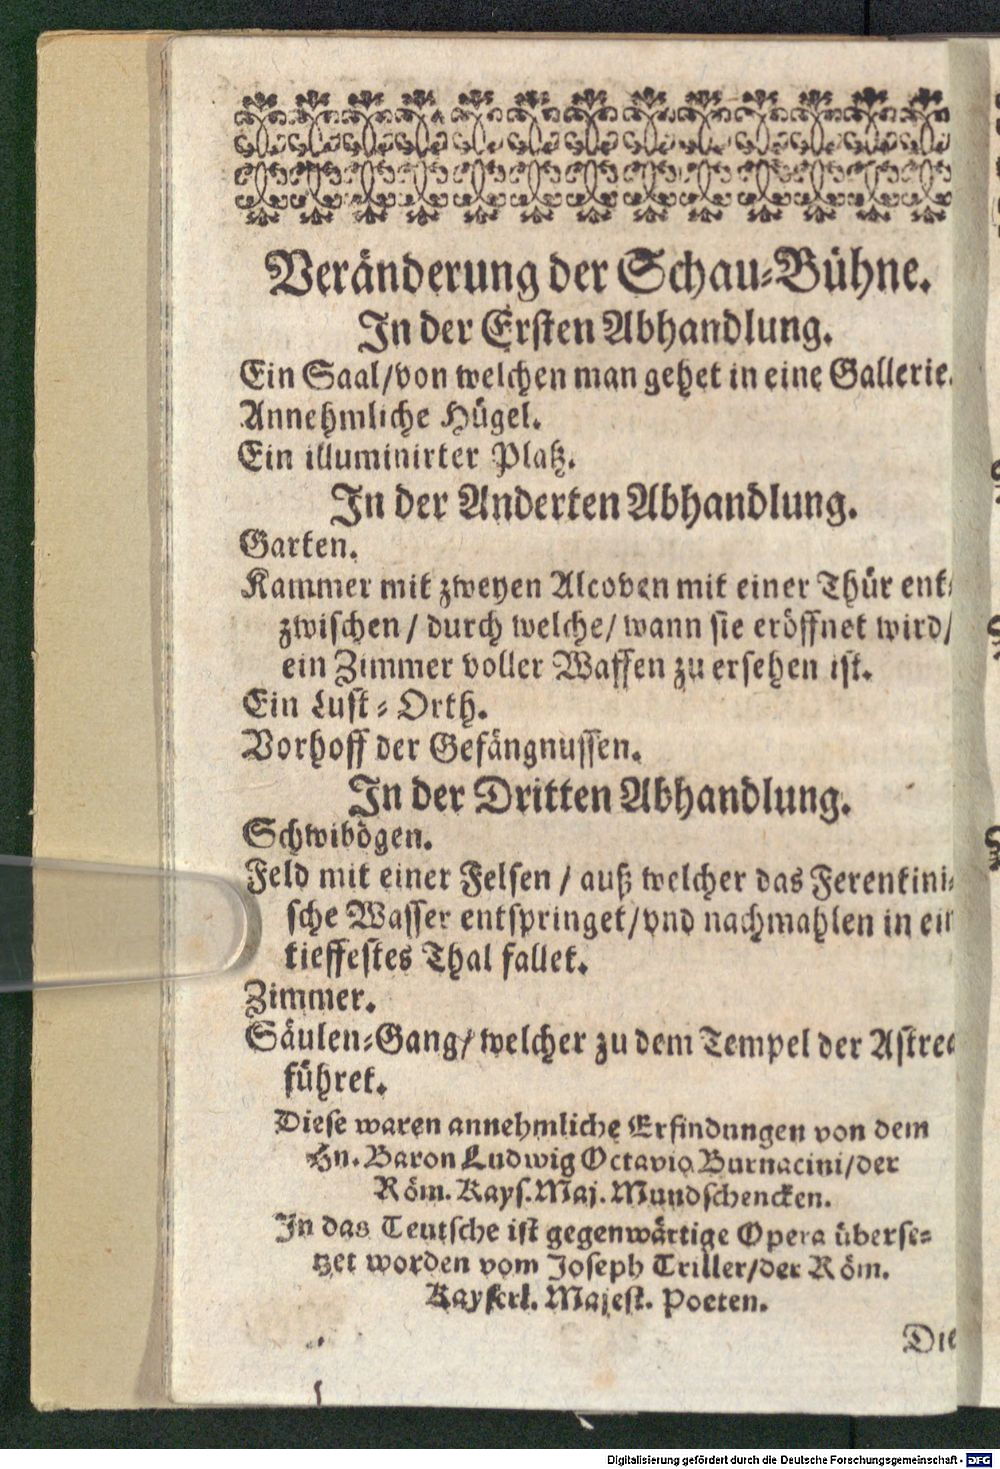 Veränderung der Schau-Bühne.
In der Ersten Abhandlung.
Ein Saal/von welchen man gehet in eine Gallerie.
Annehmliche Hügel.
Ein illuminirter Platz.
In der Anderten Abhandlung.
Garten.
Kammer mit zweyen Alcoven mit einer Thür ent-
zwischen / durch welche/ wann sie eröffnet wird/
ein Zimmer voller Waffen zu ersehen ist.
Ein Lust-Orth.
Vorhoff der Gefängnussen.
In der Dritten Abhandlung.
Schwibögen.
Feld mit einer Felsen / auß welcher das Ferentini-
sche Wasser entspringet/vnd nachmahlen in ein
tieffestes Thal fallet.
Zimmer.
Säulen-Gang/ welcher zu dem Tempel der Astrea
führet.
Diese waren annehmliche Erfindungen von dem
Hn. Baron Ludwig Octavio Burnacini/der
Röm. Kays. Maj. Mundschencken.
In das Teutsche ist gegenwärtige Opera überse-
tzet worden vom Joseph Triller/der Röm.
Kayserl. Majest. Poeten.
Die
Digitalisierung gefördert durch die Deutsche Forschungsgemeinschaft - DFG